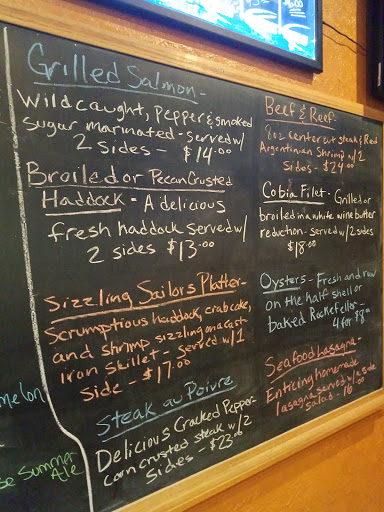 Grilled Salmon -
Wild caught, pepper & smoked
sugar marinated - served w/
2 sides - $14.00
Broiled or Pecan Crusted
Haddock - A delicious
fresh haddock served w/
2 sides $13.00
Sizzling Sailors Platter -
Scrumptious haddock, crab cake,
and shrimp sizzling on a cast
iron skillet - served w/ 1
side - $17.00
Steak au Poivre
Delicious Cracked Pepper-
corn crusted steak w/ 2
Sides - $23.00
Beef & Reef -
8oz center cut steak & Red
Argentinian Shrimp w/ 2
Sides - $24.00
Cobia Filet - Grilled or
broiled in a white wine butter
reduction - served w/ 2 sides
$18.00
Oysters - Fresh and raw
on the half shell or
baked Rockefeller -
4 for $8.00
Seafood Lasagna -
Enticing homemade
lasagna served w/ a side
salad - 16.00
melon
Summer
Ale